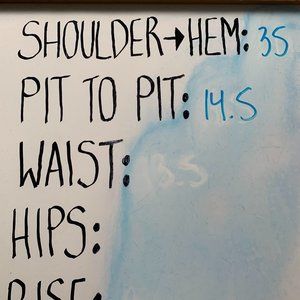 SHOULDER→HEM: 35
PIT TO PIT: 14.5
WAIST: 13.5
HIPS:
RISE: